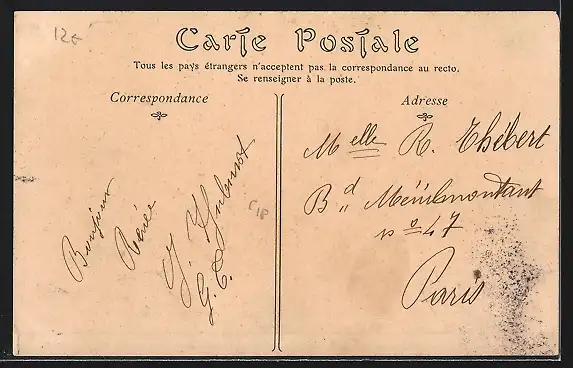 12€
Carte Postale
Tous les pays étrangers n'acceptent pas la correspondance au recto.
Se renseigner à la poste.
Correspondance
Bonjour
Renée
G. C.
Adresse
Melle R. Thébert
Bd Ménilmontant
no 47
Paris